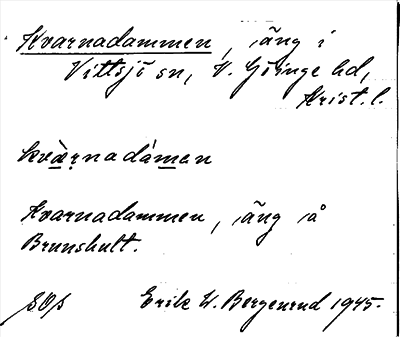 Kvarnadammen, äng i
Vittsjö sn, V. Göinge hd,
Krist. l.
kvàrnadámen
Kvarnadammen, äng å
Brunshult.
Erik W. Bergenrud 1945.